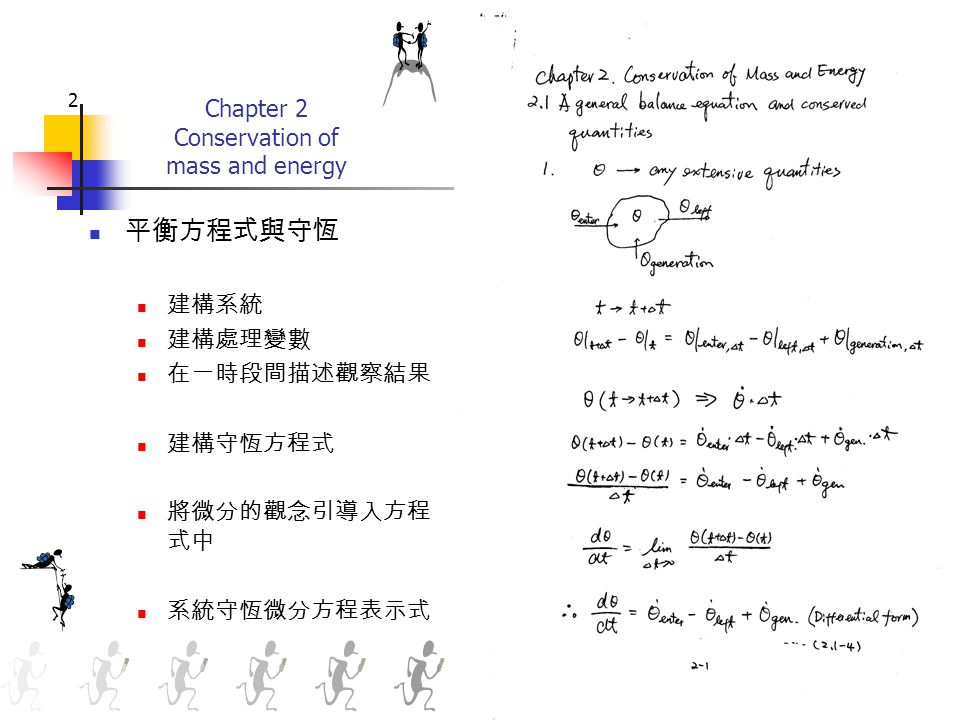 2
Chapter 2
Conservation of
mass and energy
平衡方程式與守恆
建構系統
建構處理變數
在一時段間描述觀察結果
建構守恆方程式
將微分的觀念引導入方程
式中
系統守恆微分方程表示式
Chapter 2. Conservation of Mass and Energy
2.1 A general balance equation and conserved
quantities
1. θ → any extensive quantities
θenter θ θleft
θgeneration
t → t+Δt
θ|t+Δt - θ|t = θ|enter,Δt - θ|left,Δt + θ|generation,Δt
θ(t→t+Δt) ⇒ θ̇·Δt
θ(t+Δt) - θ(t) = θ̇enter·Δt - θ̇left·Δt + θ̇gen.·Δt
(θ(t+Δt) - θ(t))/Δt = θ̇enter - θ̇left + θ̇gen
dθ/dt = lim Δt→0 (θ(t+Δt)-θ(t))/Δt
∴ dθ/dt = θ̇enter - θ̇left + θ̇gen. (Differential form)
---- (2.1-4)
2-1